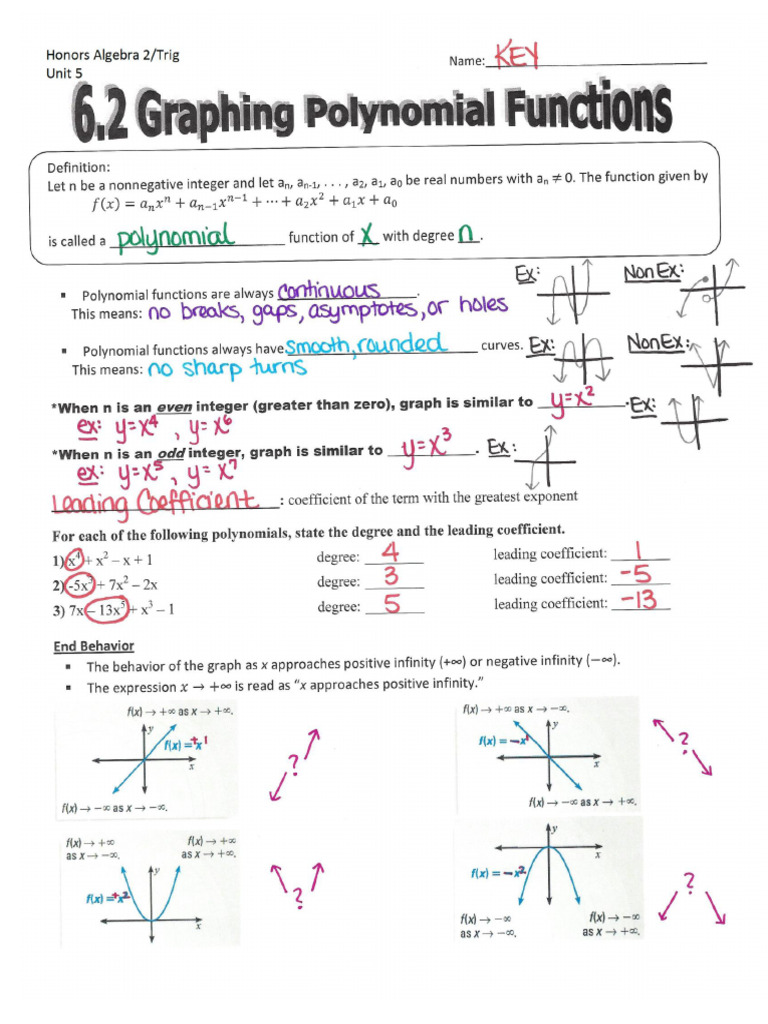 Honors Algebra 2/Trig
Name: KEY
Unit 5
6.2 Graphing Polynomial Functions
Definition:
Let n be a nonnegative integer and let aₙ, aₙ₋₁, . . . , a₂, a₁, a₀ be real numbers with aₙ ≠ 0. The function given by
f(x) = aₙxⁿ + aₙ₋₁xⁿ⁻¹ + ⋯ + a₂x² + a₁x + a₀
is called a polynomial function of x with degree n.
Ex: Non Ex:
▪ Polynomial functions are always continuous.
This means: no breaks, gaps, asymptotes, or holes
▪ Polynomial functions always have smooth, rounded curves. Ex: Non Ex:
This means: no sharp turns
*When n is an even integer (greater than zero), graph is similar to y=x². Ex:
ex: y=x⁴, y=x⁶
*When n is an odd integer, graph is similar to y=x³. Ex:
ex: y=x⁵, y=x⁷
Leading Coefficient: coefficient of the term with the greatest exponent
For each of the following polynomials, state the degree and the leading coefficient.
1) x⁴ + x² – x + 1 degree: 4 leading coefficient: 1
2) -5x³ + 7x² – 2x degree: 3 leading coefficient: -5
3) 7x – 13x⁵ + x³ – 1 degree: 5 leading coefficient: -13
End Behavior
▪ The behavior of the graph as x approaches positive infinity (+∞) or negative infinity (−∞).
▪ The expression x → +∞ is read as “x approaches positive infinity.”
f(x) → +∞ as x → +∞.
y
f(x) = +x¹
x
f(x) → −∞ as x → −∞.
?
f(x) → +∞ as x → −∞.
y
f(x) = −x¹
x
f(x) → −∞ as x → +∞.
?
f(x) → +∞ f(x) → +∞
as x → −∞. as x → +∞.
y
f(x) = +x²
x
?
y
x
f(x) = −x²
f(x) → −∞ f(x) → −∞
as x → −∞. as x → +∞.
?